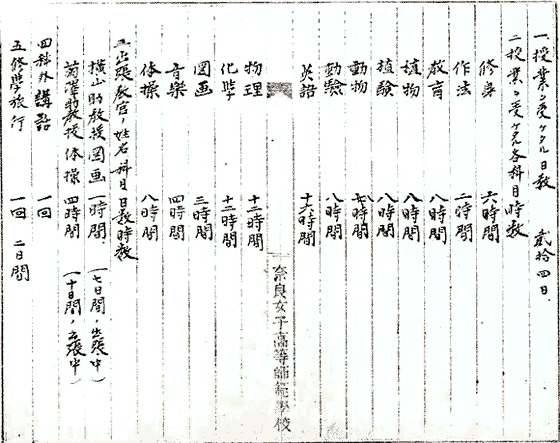 一、授業ヲ受ケタル日数 貳拾四日
二、授業ヲ受ケタル各科目時数
修身 六時間
作法 二時間
教育 八時間
植物 八時間
植驗 八時間
動物 七時間
動驗 八時間
英語 十六時間
奈良女子高等師範學校
物理 十二時間
化学 十三時間
図画 三時間
音樂 四時間
体操 八時間
三、出張教官ノ姓名科目日数時数
横山助教授 図画 一時間 (七日間ノ出張中)
助教授 体操 四時間 (十日間ノ出張中)
四、科外講話 一回
五、修学旅行 一回 二日間